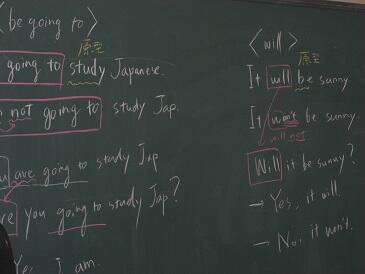 〈be going to〉
原形
going to study Japanese.
not going to study Jap.
are going to study Jap
you going to study Jap?
I am.
〈will〉
原形
It will be sunny
It won't be sunny.
will not
Will it be sunny?
→ Yes, it will.
→ No, it won't.